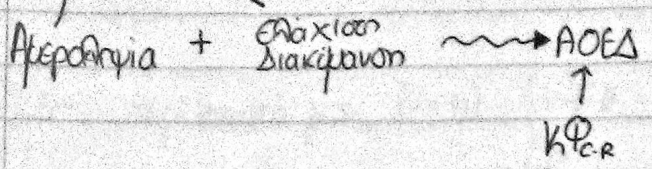 Αμεροληψία + Ελάχιστη Διακύμανση → ΑΟΕΔ
↑
ΚΦ C-R